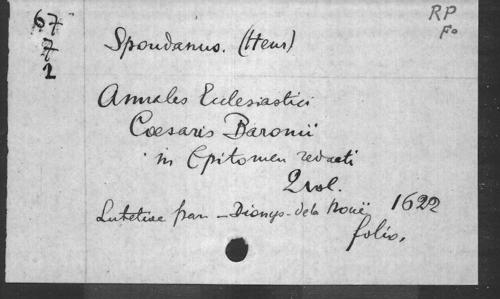 67
7
2
RP
Fo
Spondanus. (Henr)
Annales Ecclesiastici
Cæsaris Baronii
in Epitomen redacti
2 vol.
Lutetiae par - Dionys. de la Noüe 1622
folio.